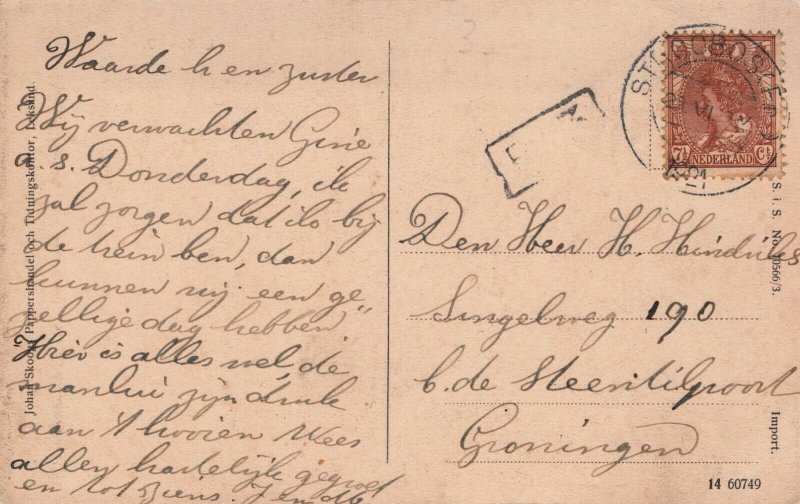 Waarde h en zuster
Wij verwachten Gine
a.s. Donderdag, ik
zal zorgen dat ik bij
de trein ben, dan
kunnen wij een ge„
zellige dag hebben
Hier is alles wel, de
manlui zijn druk
aan 't hooien Wees
allen hartelijk gegroet
en tot ziens.
Johan Skoogs Pappershandel och Tidningskontor, Leksand
7½ Ct
NEDERLAND
Den Heer H. Hindriks
Singelweg 190
b.de Steentilpoort
Groningen
S. i. S. No. 10566/3.
Import.
14 60749